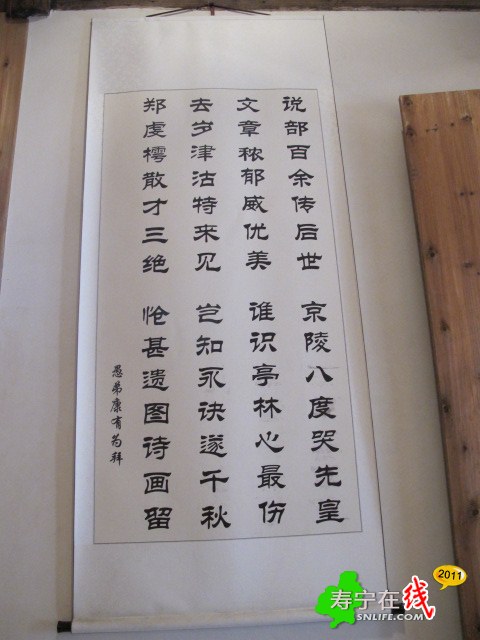 说部百余传后世 京陵八度哭先皇
文章秾郁威优美 谁识亭林心最伤
去岁津沽特来见 岂知永诀遂千秋
郑虔樗散才三绝 怆甚遗图诗画留
愚弟康有为拜
2011
寿宁在线
SNLIFE.COM